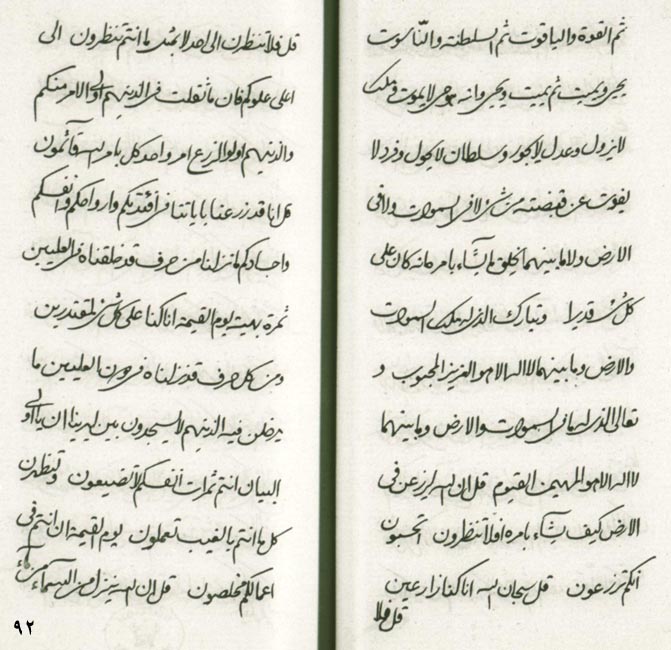 ثم القوة والياقوت ثم السلطنه والناسوت
يحيي ويميت ثم يميت ويحيي وانه هو حي لا يموت وملك
لا يزول وعدل لا يجور وسلطان لا يحول وفرد لا
يفوت عن قبضته من شئ لا في السموات ولا في
الارض ولا ما بينهما يخلق ما يشآء بامره انه كان على
كل شئ قديرا وتبارك الذي له ملك السموات
والارض وما بينهما لا اله الا هو العزيز المحبوب و
تعالى الذي له ما في السموات والارض وما بينهما
لا اله الا هو المهيمن القيوم قل ان الله ليزرعن في
الارض كيف يشآء بامره افلا تنظرون اتحسبون
انكم تزرعون قل سبحان الله انا كنا زارعين
قل فلا
قل فلا تنظرن الى احد لا بمثل ما انتم تنظرون الى
اعلى علوكم فان ما ثقلت في الذينهم اولى الامر منكم
والذينهم اولوا الزرع امر واحد كل بامر الله قآئمون
قل انا قد زرعنا باياتنا في افئدتكم وارواحكم وانفسكم
واجسادكم ما نزلنا من حرف قد خلقناه في العليين
ثمرة بهية يوم القيمة انا كنا على كل شئ لمقتدرين
ومن كل حرف قد نزلناه في دون العليين ما
يدخلن فيه الذينهم لا يسجدون بين يدي الله ربنا ان يا اولى
البيان انتم ثمرات انفسكم لا تضيعون وتنظرن
كل ما انتم بالغيب تعملون يوم القيمة ان انتم في
اعمالكم مخلصون قل ان الله ينزل من السمآء من مآء
٩٢